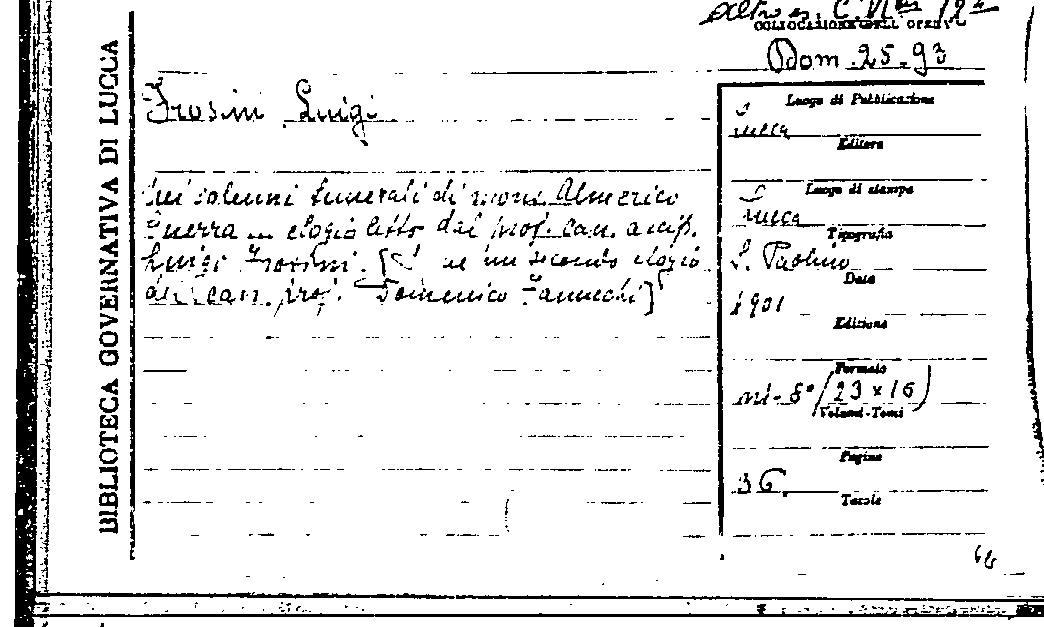 altro es. C.
COLLOCAZIONE DELL'OPERA
Dom. 25.93
BIBLIOTECA GOVERNATIVA DI LUCCA
Frosini Luigi
Nei solenni funerali di mons. Almerico
Guerra ... elogio letto dal prof. can. arcip.
Luigi Frosini. [C' è un secondo elogio
del can. prof. Domenico Fanucchi]
Luogo di Pubblicazione
Lucca
Editore
Luogo di stampa
Lucca
Tipografia
S. Paolino
Data
1901
Edizione
Formato
in-8° (23 x 16)
Volumi-Tomi
Pagine
36.
Tavole